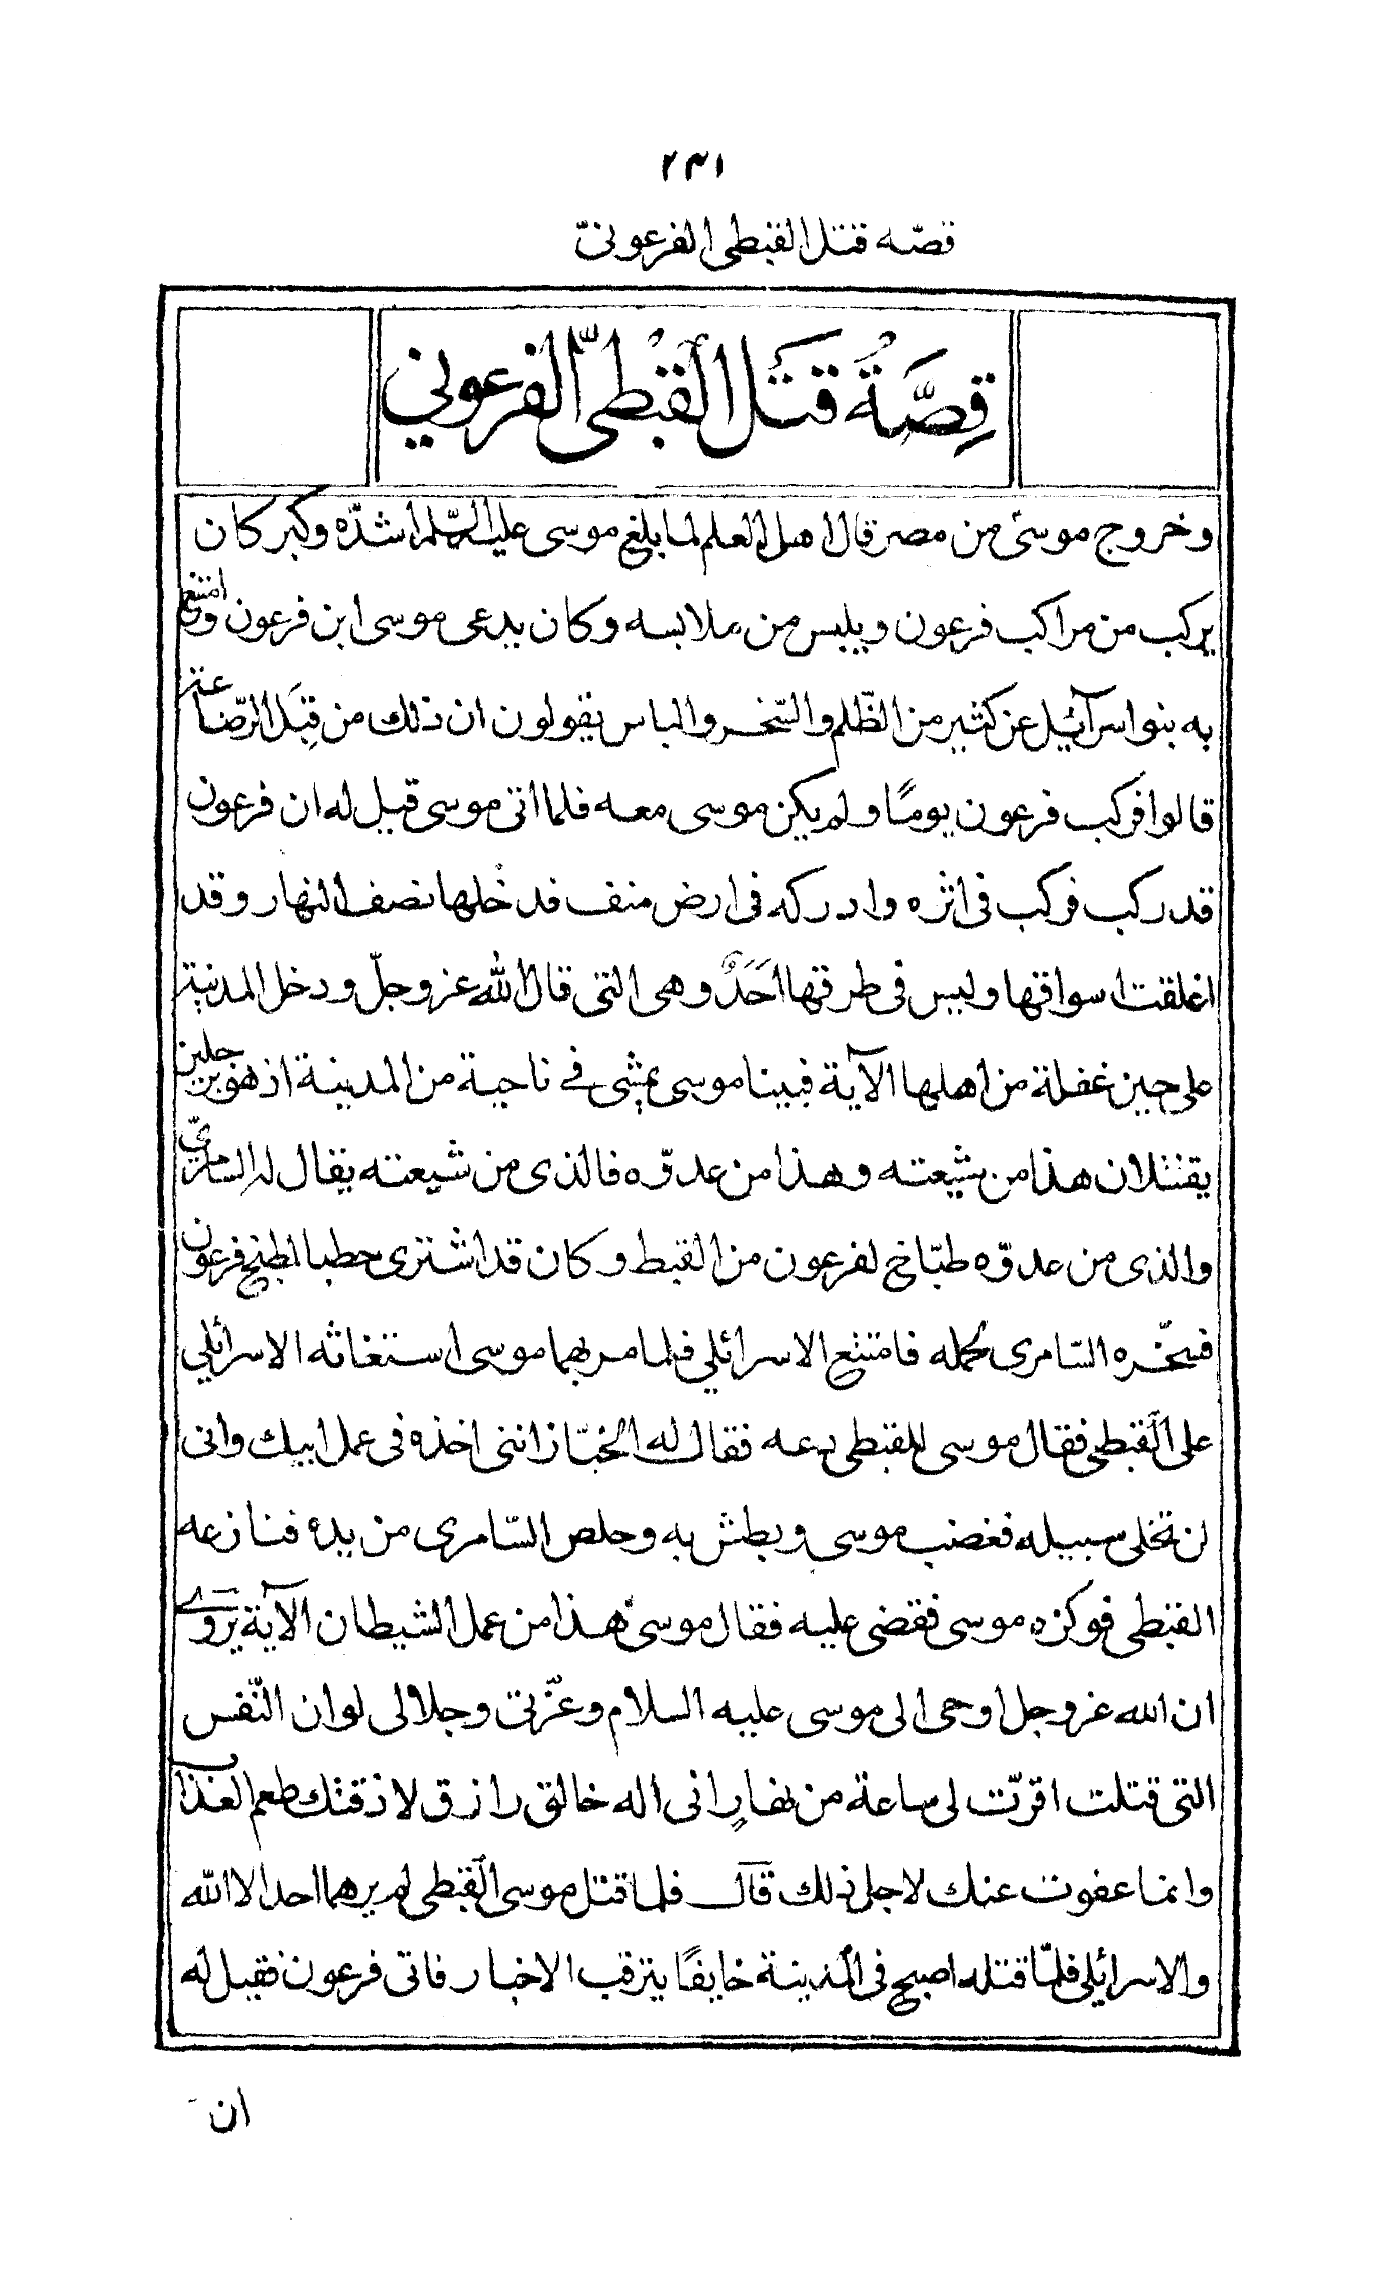 ٢٣١
قصّه قتل القبطى الفرعونىّ
قِصَّةُ قَتَل القبْطىّ الفرعوني
وخروج موسىٰ من مصر قال اهل العلم لما بلغ موسى عليه السّلم اشدّه وكبر كان
يركب من مراكب فرعون ويلبس من ملابسه وكان يدعى موسى ابن فرعون وامتنع
به بنوا سرآئيل عن كثير من الظّلم والسّخر والناس يقولون ان ذلك من قِبَل الرّضاعة
قالوا فركب فرعون يومًا ولم يكن موسى معه فلما اتى موسى قيل له ان فرعون
قد ركب فركب فى اثره وادركه فى ارض منف فدخلها نصف النهار وقد
اغلقت اسواقها وليس فى طرقها احَدٌ وهى التى قال الله عز وجلّ ودخل المدينة
على حين غفلة من اهلها الآية فبينا موسى يمشى فے ناحية من المدينة اذ هو برجلين
يقتتلان هذا من شيعته وهذا من عدوّه فالذى من شيعته يقال له السّامرىّ
والذى من عدوّه طبّاخ لفرعون من القبط وكان قد اشترى حطبا لطبخ فرعون
فسخّره السّامرى لحمله فامتنع الاسرائلي فلما مر بهما موسى استغاثه الاسرائلي
على القبطى فقال موسى للقبطى دعه فقال له الخبّاز اننى اخذه فى عمل ابيك وانى
لن تخلى سبيله فغضب موسى وبطش به وخلص السّامرى من يده فنازعه
القبطى فوكزه موسى فقضى عليه فقال موسىٰ هذا من عمل الشيطان الآية يروے
ان الله عز وجل اوحى الى موسى عليه السلام وعزّتى وجلالى لوان النّفس
التى قتلت اقرّت لى ساعة من نهارٍ انى اله خالق رازق لاذقتك طعم العذاب
وانما عفوت عنك لاجل ذلك قال فلما قتل موسى القبطى لم يرهما احد الا الله
والاسرائلى فلمّا قتله اصبح فى المدينة خايفًا يترقب الاخبار فاتى فرعون فقيل له
ان